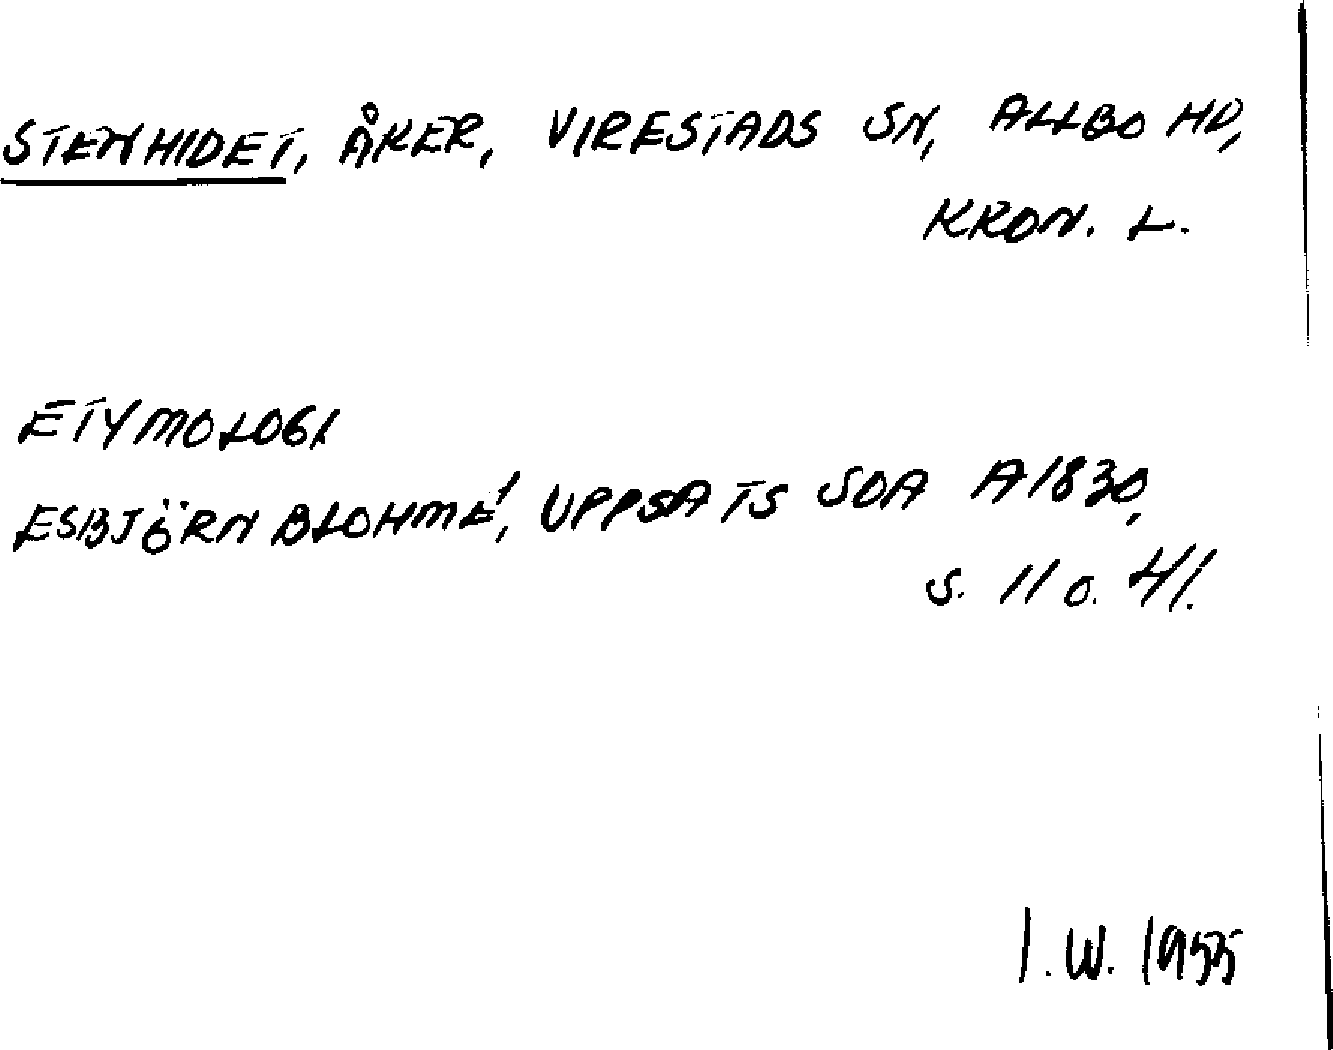 STENHIDET, ÅKER, VIRESTADS SN, ALLBO HD,
KRON. L.
ETYMOLOGI
ESBJÖRN BLOHMÉ, UPPSATS SOA A1830,
S. 11 o. 41.
I. W. 1955